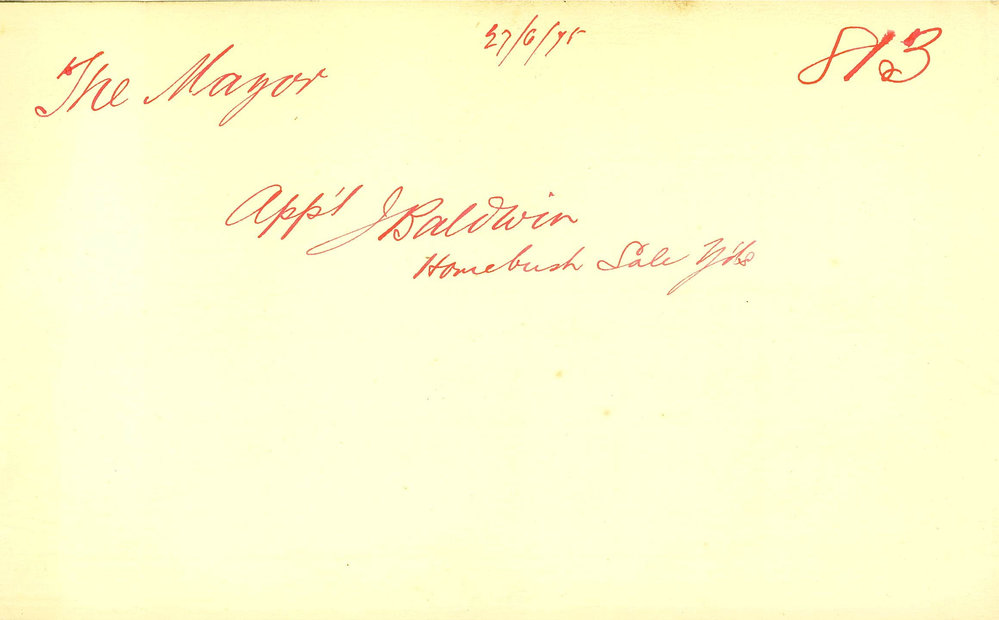 27/6/75
813
The Mayor
App't J Baldwin
Homebush Sale Y'ds